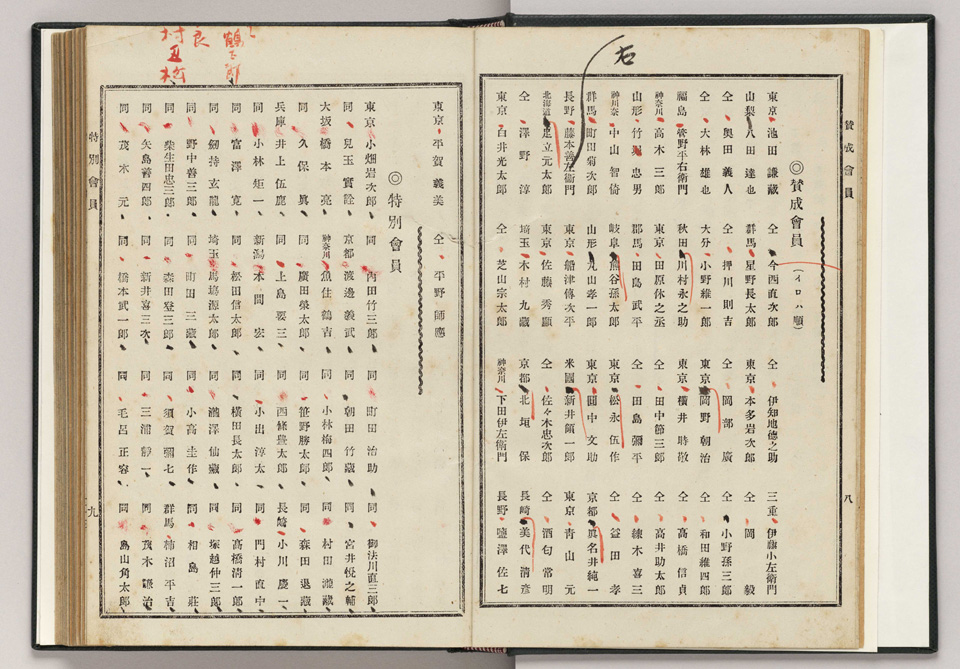 右
賛成會員
八
◎賛成會員
(イロハ順)
東京 池田謙蔵
仝 今西直次郎
仝 伊知地徳之助
三重 伊藤小左衛門
山梨 八田達也
群馬 星野長太郎
東京 本多岩次郎
仝 岡毅
仝 奥田義人
仝 押川則吉
仝 岡部廣
仝 小野孫三郎
仝 大林雄也
大分 小野維一郎
東京 岡野朝治
仝 和田維四郎
福島 菅野平右衛門
秋田 川村永之助
東京 横井時敬
仝 高橋信貞
神奈川 高木三郎
東京 田原休之丞
仝 田中節三郎
仝 高井助太郎
山形 竹 忠男
群馬 田島武平
仝 田島彌平
仝 練木喜三
神奈川 中山智倚
岐阜 熊谷孫太郎
東京 松永伍作
仝 益田孝
群馬 町田菊次郎
山形 丸山孝一郎
東京 圓中文助
京都 眞名井純一
長野 藤本善左衛門
東京 船津傳次平
米國 新井領一郎
東京 青山元
北海道 足立元太郎
東京 佐藤秀顯
仝 佐々木忠次郎
仝 酒匂常明
仝 澤野淳
埼玉 木村九蔵
京都 北垣保
長崎 美代清彦
東京 白井光太郎
仝 芝山宗太郎
神奈川 下田伊左衛門
長野 鹽澤佐七
鶴
良
村
特別會員
九
東京 平賀義美
仝 平野師應
◎特別會員
東京 小畑岩次郎
同 内田竹三郎
同 町田治助
同 御法川直三郎
同 兒玉實詮
京都 渡邊義武
同 朝田竹蔵
同 宮井悦之輔
大坂 橋本亮
神奈川 魚住鶴吉
同 小林梅四郎
同 村田 蔵
同 久保眞
同 廣田榮太郎
同 笹野勝太郎
同 森田退蔵
兵庫 井上伍鹿
同 上島要三
同 西條豊太郎
長崎 小川慶一
同 小林矩一
新潟 本間宏
同 小出淳太
同 門村直中
同 富澤寛
同 松田信太郎
同 横田長太郎
同 高橋清一郎
同 劔持玄龍
埼玉 馬塲源太郎
同 瀧澤仙蔵
同 塚越仲三郎
同 野中善三郎
同 町田三蔵
同 小高圭作
同 相島莊
同 柴生田忠三郎
同 森田登三郎
同 須賀彌七
群馬 柿沼平吉
同 矢島善四郎
同 新井喜三次
同 三浦靜一
同 茂木謙治
同 茂木元
同 橋本武一郎
同 毛呂正容
同 島山角太郎